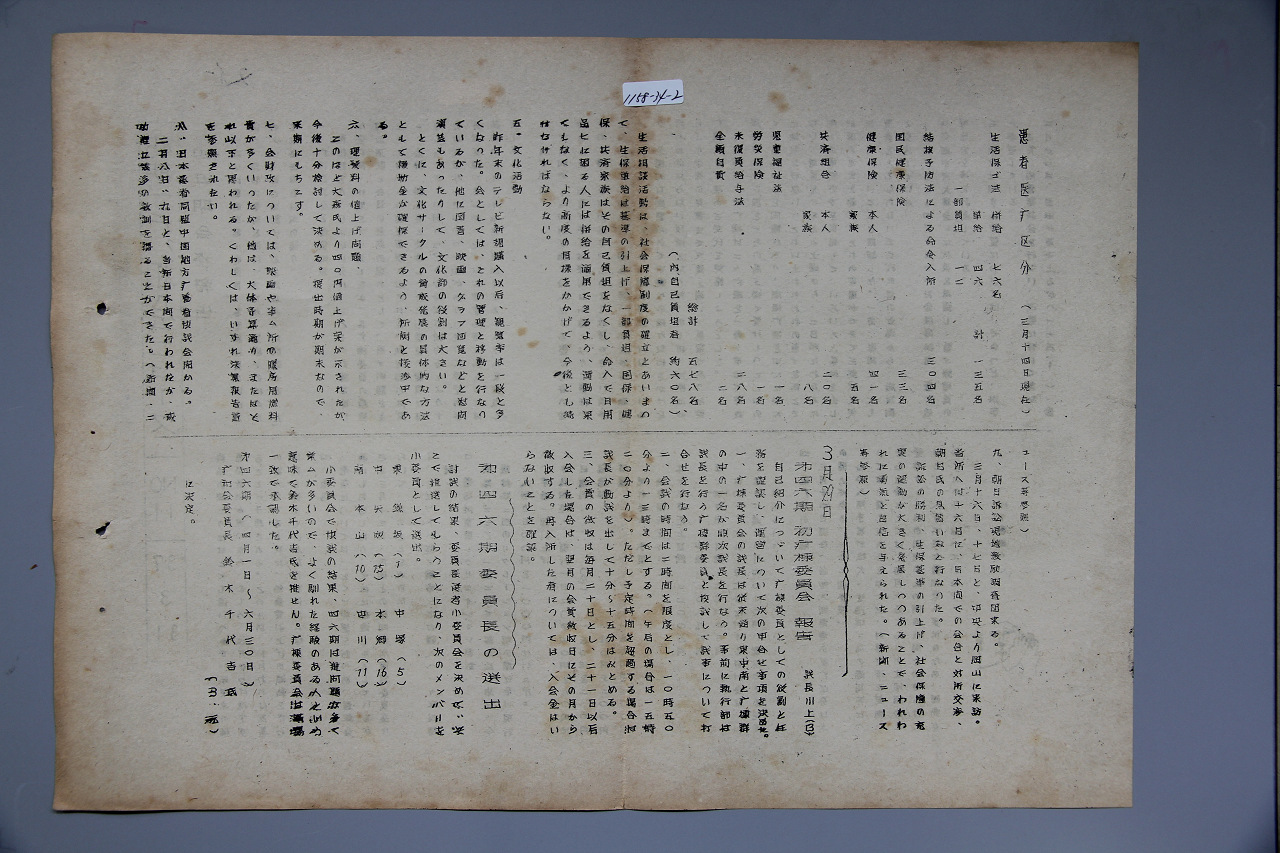 1158-34-2
患者医療区分 (三月十四日現在)
生活保ゴ法 併給 七六名
単給 四六 計 一三五名
一部負担 一三
結核予防法による命令入所 三〇四名
国民健康保険 三三名
健康保険 本人 四一名
家族 五名
共済組合 本人 二〇名
家族 八名
児童福祉法 一名
労災保険 一名
未復員給与法 二八名
全額自費 二名
総計 五七八名
(内自己負担者 約六〇名)
生活相談活動は、社会保障制度の確立とあいまつ
て、生保患者は基準の引上げ、一部負担、国保、健
保、共済家族はその自己負担をなくし、命入で日用
品に困る人には併給を適用できるよう、運動は果
てもなく、より高度の目標をかかげて、今後とも続
けなければならない。
五、文化活動
昨年末のテレビ新規購入以后、観覧率は一段と多
くなった。会としては、これの管理と移動を行なつ
ているが、他に図書、映画、クラブ回覧などと慰問
演芸もあったりして、文化部の役割は大きい。
とくに、文化サークルの育成発展の具体的な方法
として補助金が確保できるよう、所側と接渉中であ
る。
六、理髪料の値上げ問題、
このほど大森氏より四〇円値上げ案が示されたが、
今後十分検討して決める。提出時期が期末なので、
来期にもちこす。
七、会財政については、映画や事ム所の暖房用燃料
費が多くいったが、他は、大体予算通り、またはそ
れ以下と思われる。くわしくは、いずれ決算報告書
を参照されたい。
八、日本患者同盟中国地方療養者協議会開かる。
二月八日、九日と、当新日本園で行われたが、成
功裡に幾多の教訓を得ることができた。(新聞、ニ
ュース等参照)
九、朝日訴訟現地激励調査団来る。
三月十六日、十七日と、中央より岡山に来訪。
当所へは十六日に、日本園での会合と対所交渉、
朝日氏の見舞いなど行なった。
訴訟の勝利、生保基準の引上げ、社会保障の充
実の運動が大きく発展しつつあることで、われわ
れに勇気と自信を与えられた。(新聞、ニュース
等参照)
3月29日
才四六期初療棟委員会報告 議長川上(13)
自己紹介につづいて療棟委員としての役割と任
務を確認し、運営について次の申合せ事項を決める。
一、療棟委員会の議長は従来通り東中南と療棟群
の中の一名が順次議長を行なう。事前に執行部は
議長を行う療棟群委員と検討して議事について打
合せを行なう。
二、会議の時間は二時間を限度とし、一〇時五〇
分より一三時までとする。(午后の場合は一五時
二〇分より)。ただし予定時間を超過する場合は
議長が動議を出して十分〜十五分はみとめる。
三、会費の徴収は毎月二十日とし、二十一日以后
入会した場合は、翌月の会費徴収日にその月から
徴収する。再入所した者については、入会金はい
らないことを確認。
才四六期委員長の選出
討議の結果、委員長選考小委員会を決めせい
とで推選してもらうことになり、次のメンバーを
小委員として選出。
東 (1) 中塚(5)
中 (15) 本郷(16)
南 本山(10) 世川(11)
小委員会で協議の結果、四六期は進問題が多く
意味で鈴木千代吉氏を推せん。療棟委員会は満場
一致で承認した。
才四六期(四月一日〜六月三〇日)
療和会委員長 鈴木千代吉氏
に決定。